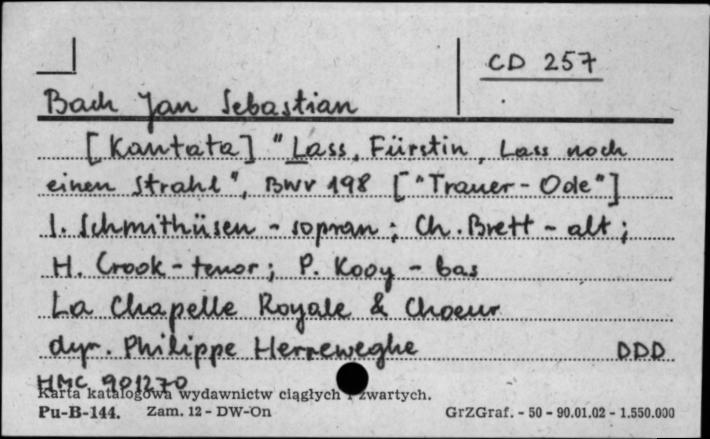 CD 257
Bach Jan Sebastian
[Kantata] "Lass, Fürstin, Lass noch
einen Strahl", BWV 198 ["Trauer-Ode"]
I. Schmithüsen - sopran; Ch. Brett - alt;
H. Crook - tenor; P. Kooy - bas
La Chapelle Royale & Choeur
dyr. Philippe Herreweghe DDD
HMC 901270
Karta katalogowa wydawnictw ciągłych i zwartych.
Pu-B-144. Zam. 12 - DW-On GrZGraf. - 50 - 90.01.02 - 1.550.000